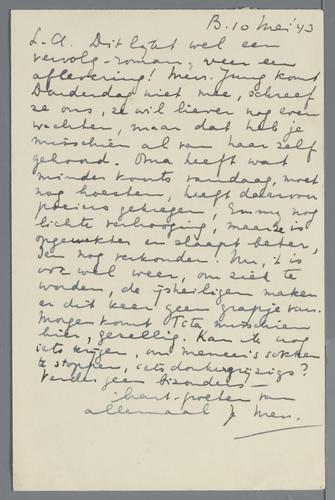 B. 10 Mei '43
L. A. Dit lijkt wel een
vervolg-roman, weer een
aflevering! Mevr. Jung komt
Donderdag niet mee, schreef
ze ons, ze wil liever nog even
wachten, maar dat heb je
misschien al van haar zelf
gehoord. Oma heeft wat
minder koorts vandaag, moet
nog hoesten, heeft daarvoor
poeiers gekregen, Emmy nog
lichte verhooging, maar ze is
opgewekter en slaapt beter,
Jan nog verkouden. Nu, 't is
ook wel weer, om ziek te
worden, de ijsheiligen maken
er dit keer geen grapje van.
Morgen komt Tita misschien
hier, gezellig. Kan ik nog
iets krijgen, om meneer's sokken
te stoppen, iets donkergrijzigs?
Verder geen bizonders —
hart. groeten van
allemaal